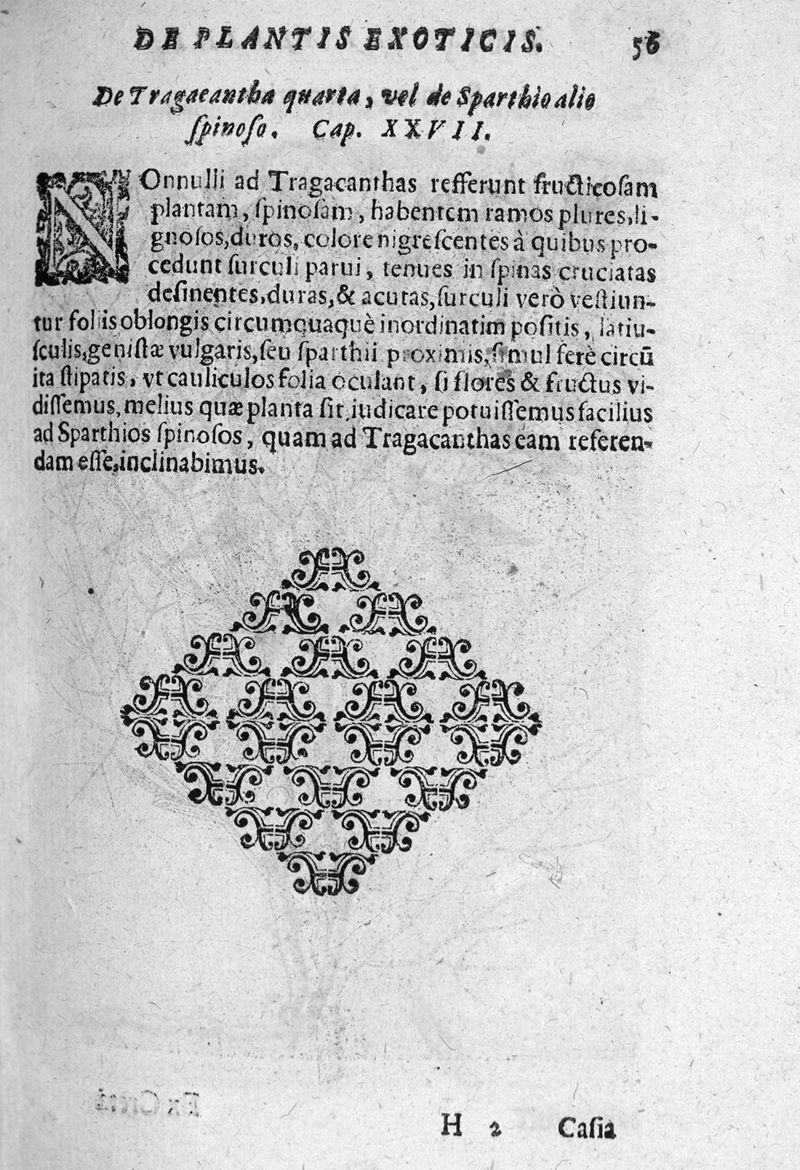 DE PLANTIS EXOTICIS. 56
De Tragaeantha quarta, vel de Sparthio alio
ſpinoſo. Cap. XXVII.
NOnnulli ad Tragacanthas refferunt fructicoſam
plantam, ſpinoſam, habentem ramos plures, li-
gnoſos, duros, colore nigreſcentes à quibus pro-
cedunt ſurculi parui, tenues in ſpinas cruciatas
deſinentes, duras, & acutas, ſurculi verò veſtiun-
tur foliis oblongis circumquaquè inordinatim poſitis, latiu-
ſculis, geniſtæ vulgaris, ſeu ſparthii proximis, ſimul ferè circū
ita ſtipatis, vt cauliculos folia oculant, ſi flores & fructus vi-
diſſemus, melius quæ planta ſit, iudicare potuiſſemus facilius
ad Sparthios ſpinoſos, quam ad Tragacanthas eam referen-
dam eſſe, inclinabimus.
H 2 Caſia